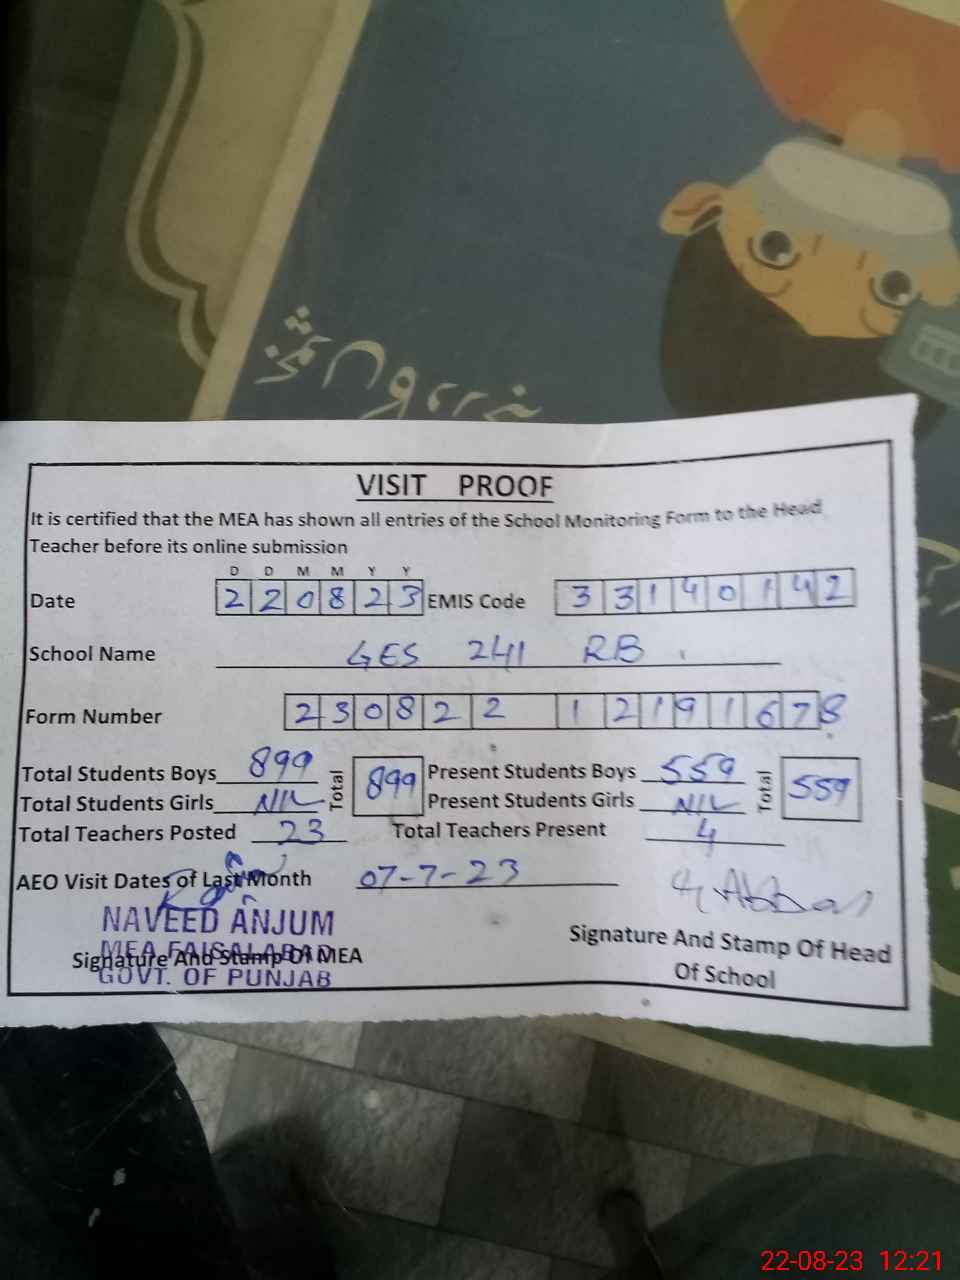 VISIT PROOF
It is certified that the MEA has shown all entries of the School Monitoring Form to the Head
Teacher before its online submission
D D M M Y Y
Date 2 2 0 8 2 3 EMIS Code 3 3 1 4 0 1 4 2
School Name GES 241 RB
Form Number 2 3 0 8 2 2 1 2 1 9 1 6 7 8
Total Students Boys 899 Total 899 Present Students Boys 559 Total 559
Total Students Girls NIL Present Students Girls NIL
Total Teachers Posted 23 Total Teachers Present 4
AEO Visit Dates of Last Month 07-7-23
NAVEED ANJUM
MEA FAISALABAD
Signature And Stamp Of MEA
GOVT. OF PUNJAB
Signature And Stamp Of Head
Of School
22-08-23 12:21